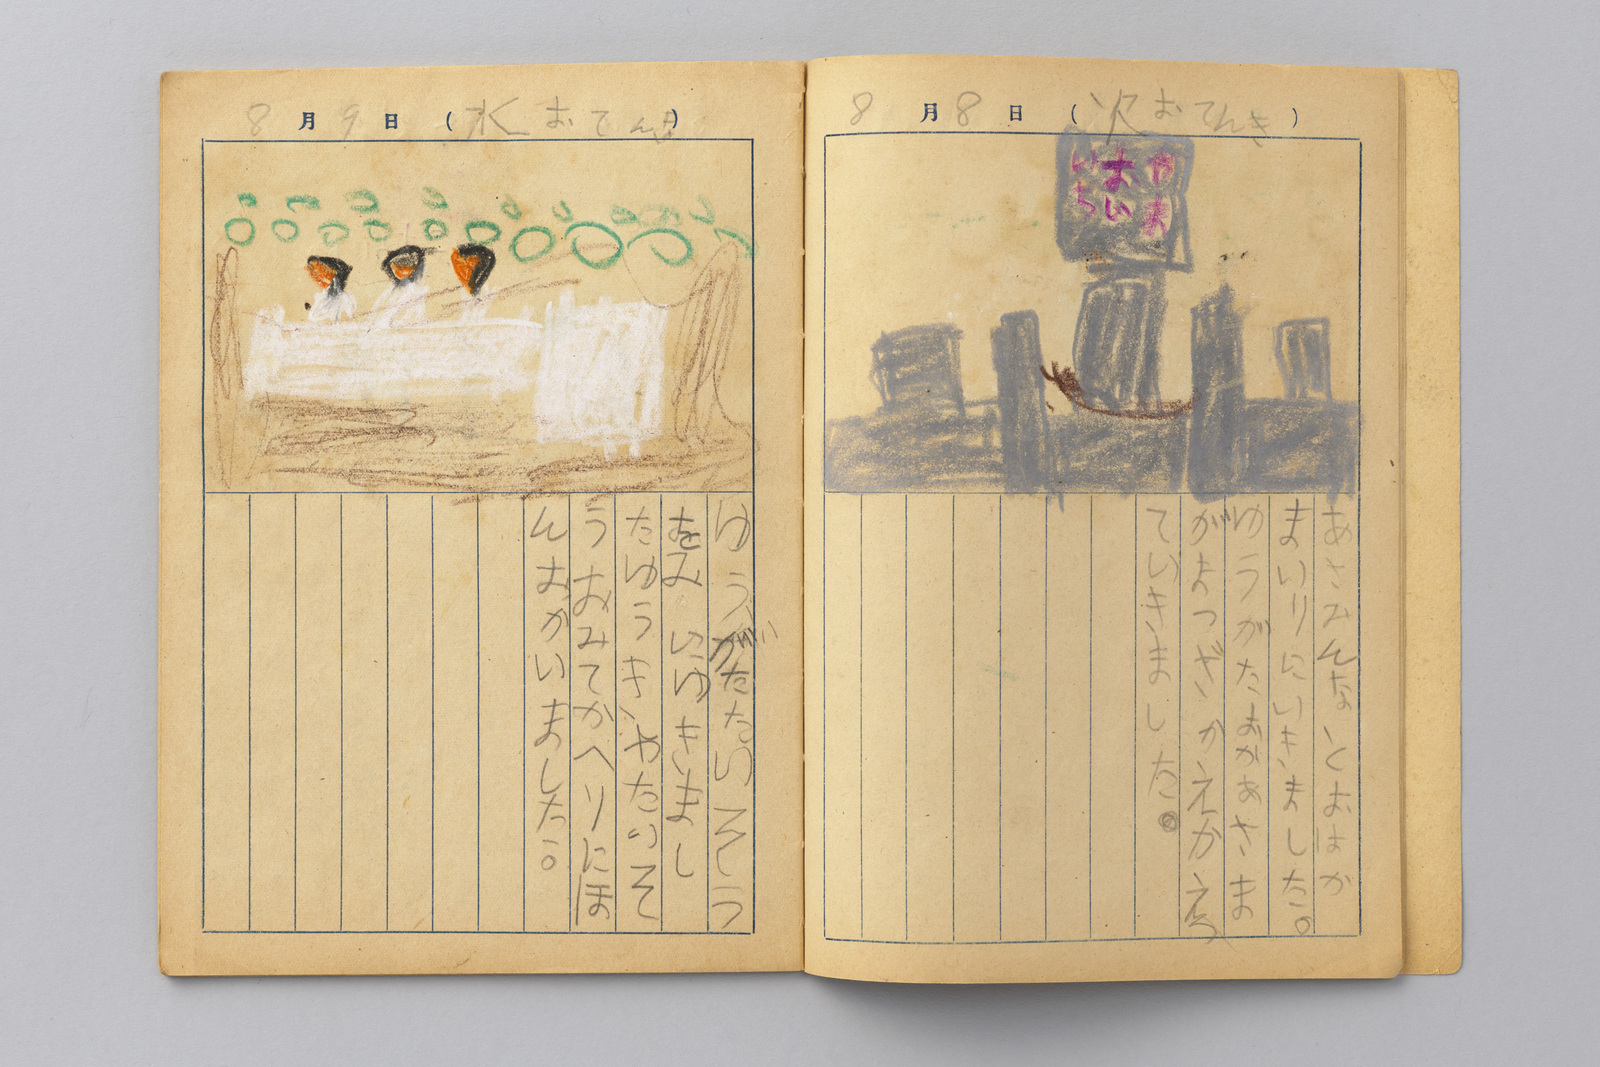 8月8日(火おてんき)
やま
おい
いち
あさみんなとおはか
まいりにいきました。
ゆうがたおかあさま
がよつぎかえかえつ
ていきました。
8月9日(水おてんき)
ゆうがたたいそう
をみにゆきまし
たゆうきやたいそ
うおみてかへりにほ
んおかいました。